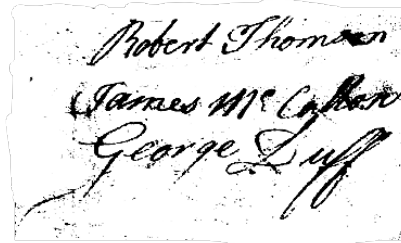 Robert Thomson
James Mc
George Duff